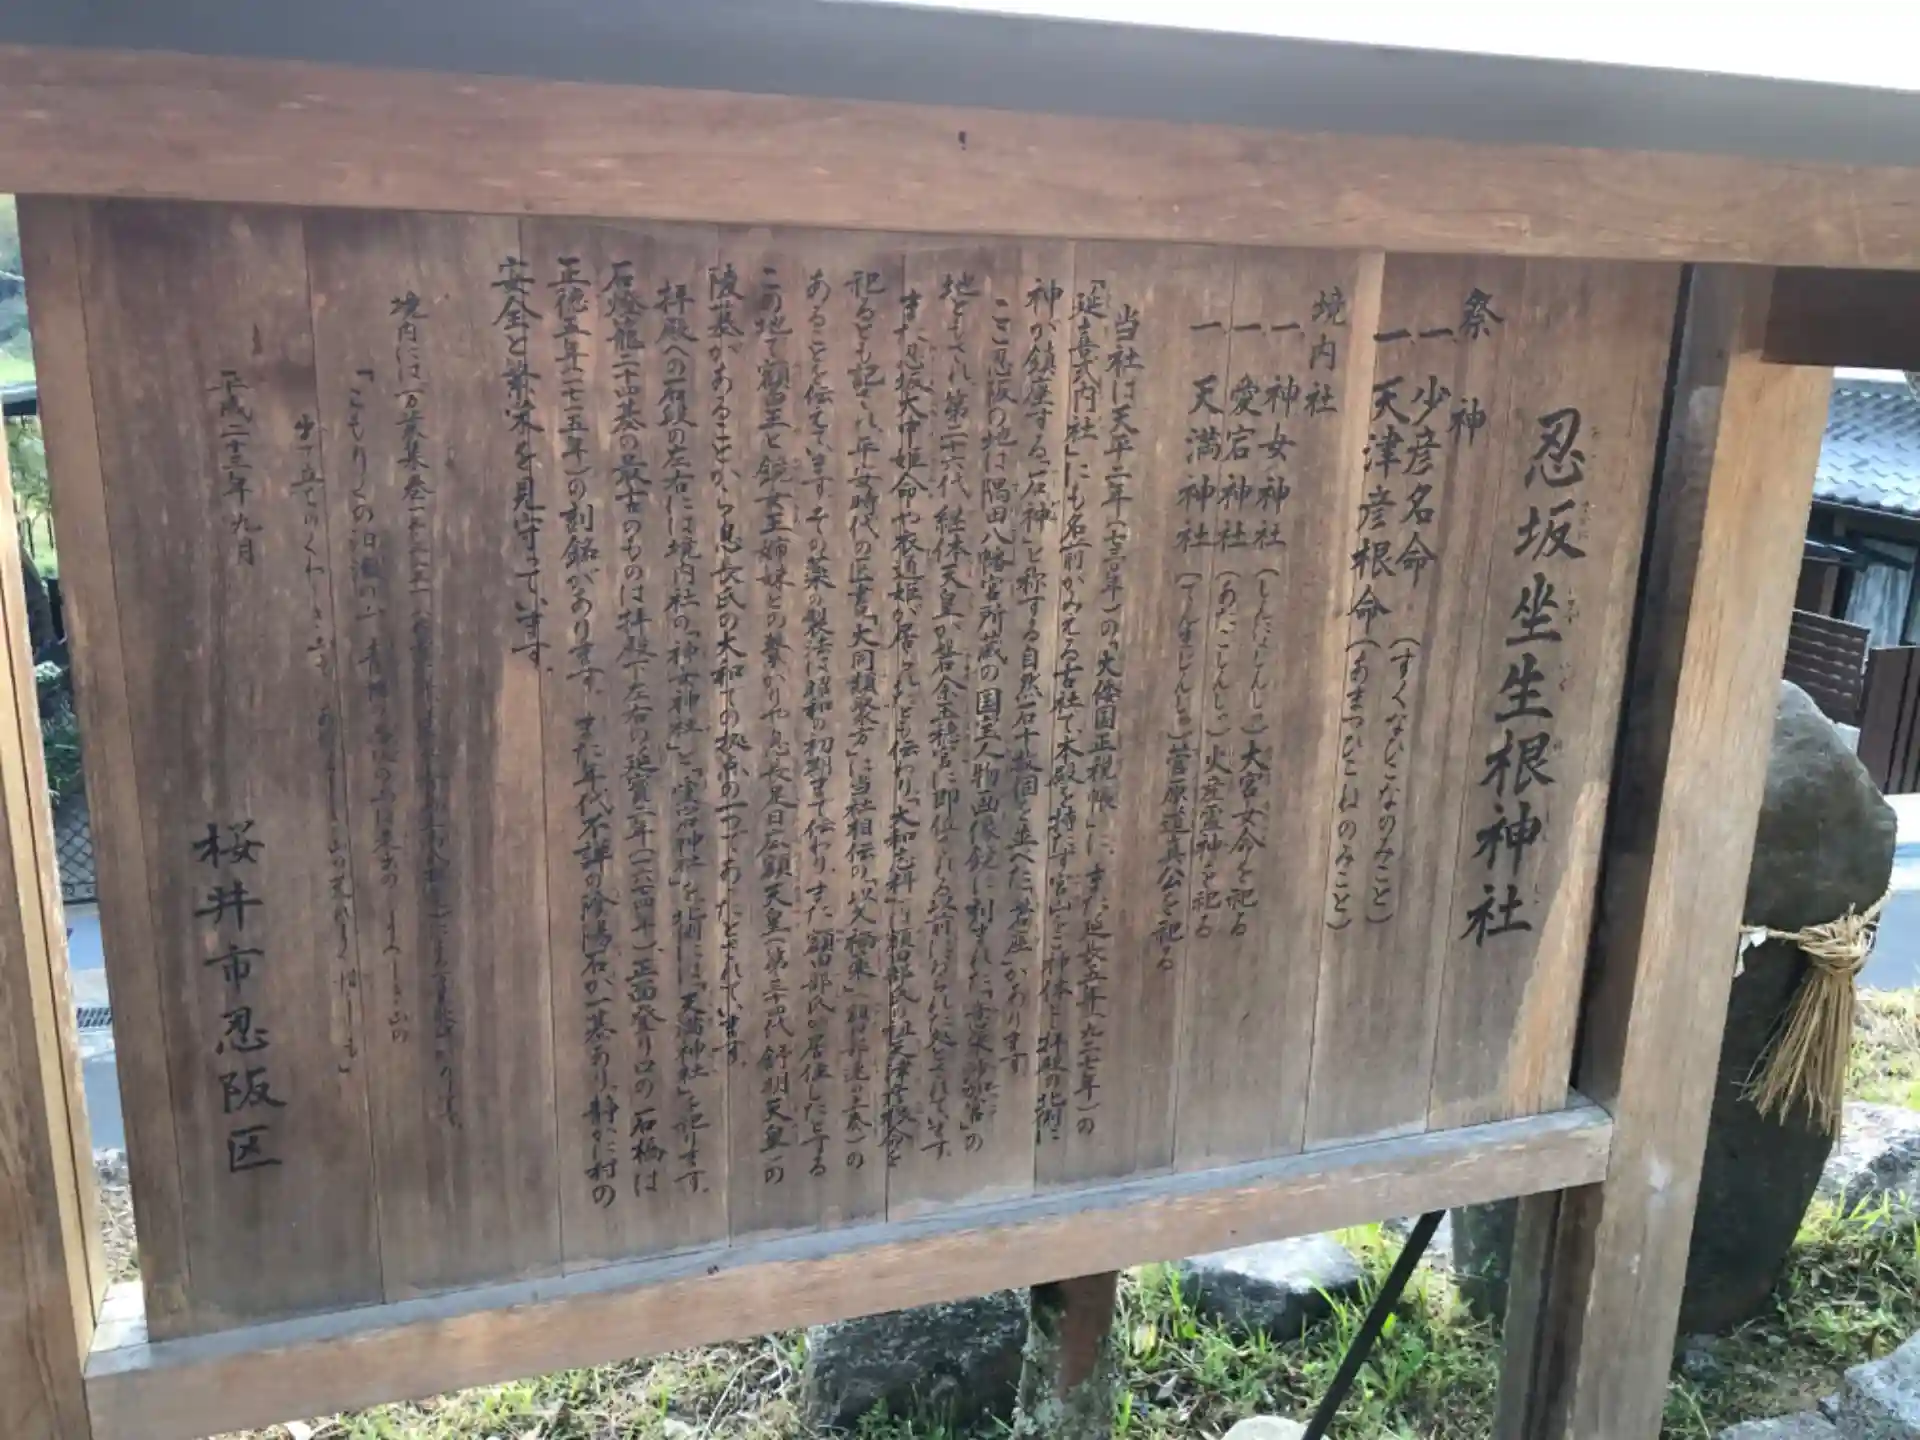 忍坂坐生根神社
祭神
一 少彦名命(すくなひこなのみこと)
一 天津彦根命(あまつひこねのみこと)
境内社
一 神女神社(しんにょじんじゃ)大宮女命を祀る
一 愛宕神社(あたごじんじゃ)火産霊神を祀る
一 天満神社(てんまんじんじゃ)菅原道真公を祀る
当社は天平二年(七三〇年)の「大倭国正税帳」に、また延長五年(九二七年)の
「延喜式内社」にも名前がみえる古社で、本殿を持たず宮山をご神体とし拝殿の北側に
神が鎮座する「石神」と称する自然石十数個を並べた「磐座」があります。
ここ忍阪の地は隅田八幡宮所蔵の国宝人物画像鏡に刻まれた「意柴沙加宮」の
地ともされ、第二十六代継体天皇が磐余玉穂宮に即位される以前におられた処とされています。
また、忍坂大中姫命や衣通姫が居られたとも伝わり、「大和志料」は額田部氏の祖天津彦根命を
祀るとも記され、平安時代の医書「大同類聚方」に当社相伝の「以久禰薬」(額田部連の上奏)の
あることを伝えています。その薬の製法は昭和の初期まで伝わり、また額田部氏が居住したとする
この地で額田王と鏡女王姉妹との繋がりや息長足日広額天皇(第三十四代舒明天皇)の
陵墓があることから息長氏の大和での拠点の一つであったとされています。
拝殿への石段の左右には境内社の「神女神社」と「愛宕神社」を、北側には「天満神社」を祀ります。
石燈籠二十四基の最古のものは拝殿下左右の延宝二年(一六七四年)、正面登り口の石橋は
正徳五年(一七一五年)の刻銘があります。また年代不詳の陰陽石が一基あり、静かに村の
安全と繁栄を見守っています。
境内には万葉集巻十三-三三三一
「こもりくの 泊瀬の山 青幡の 忍坂の山は 走出の よろしき山の
出立の くわしき山ぞ あたらしき 山の 荒れまく 惜しも」
平成二十三年九月
桜井市忍阪区